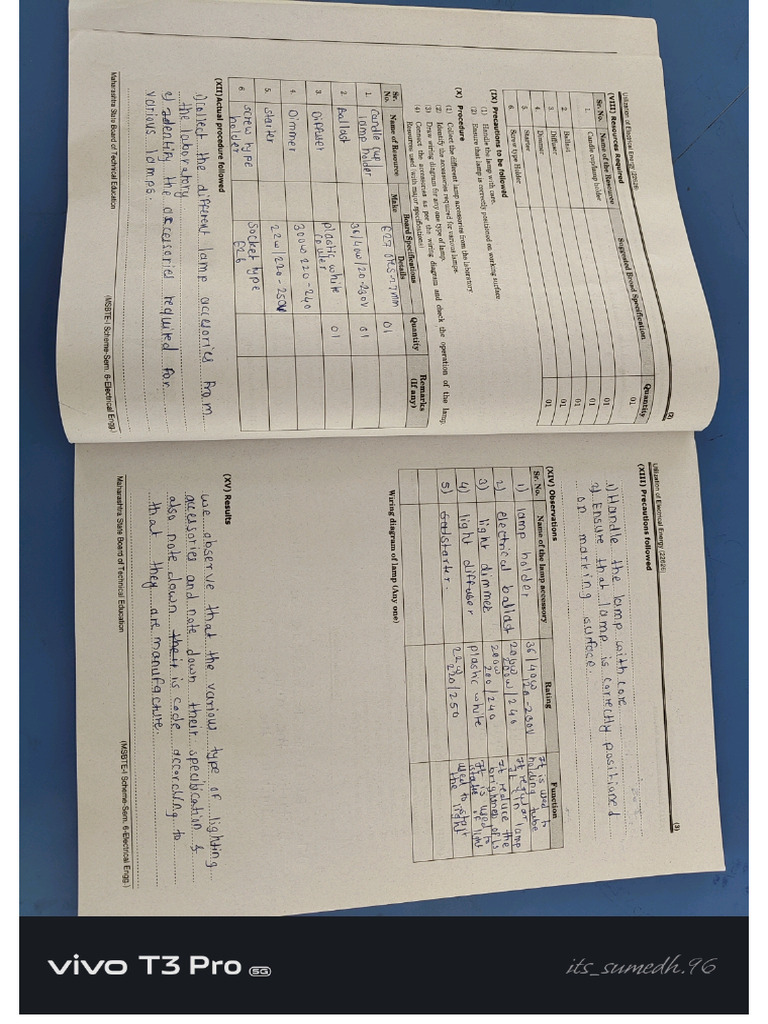 Utilization of Electrical Energy (22626)
(2)
(VIII) Resources Required
Sr. No. Name of the Resource Suggested Broad Specification Quantity
1. Candle cup/lamp holder 01
2. Ballast 01
3. Diffuser 01
4. Dimmer 01
5. Starter 01
6. Screw type Holder 01
(IX) Precautions to be followed
(1) Handle the lamp with care.
(2) Ensure that lamp is correctly positioned on working surface
(X) Procedure
(1) Collect the different lamp accessories from the laboratory
(2) Identify the accessories required for various lamps.
(3) Draw wiring diagram for any one type of lamp.
(4) Connect the accessories as per the wiring diagram and check the operation of the lamp.
Resources used (with major specifications)
Sr. No. Name of Resource Make Broad Specifications Details Quantity Remarks (If any)
1. Candle cup lamp holder. E27 01
2. Ballast 36/40W/20-230V 01
3. plastic white 01
4. Dimmer 300W 220-240
5. starter 22W/220-250V
6. screw type holder socket type
(XII) Actual procedure followed
1) collect the different lamp accesories from
the laboratory
2) identify the accesories required for
various lamps.
Maharashtra State Board of Technical Education (MSBTE-I Scheme-Sem. 6-Electrical Engg.)
Utilization of Electrical Energy (22626)
(3)
(XIII) Precautions followed
1) Handle the lamp with care
2) Ensure that lamp is correctly positioned
on marking surface.
(XIV) Observations
Sr. No. Name of the lamp accessory Rating Function
1) lamp holder 36/40W 120-230V It is used to holding tube
2) electrical ballast It regular lamp
3) light dimmer 200W 200/240 It reduce the brightness of
4) light diffuser plastic white It is used
5) starter. 22W 220/250 used to start the light
Wiring diagram of lamp (Any one)
(XV) Results
we observe that the various type of lighting
accessories and note down their specification &
also note down is code according to
that they are manufacture.
Maharashtra State Board of Technical Education (MSBTE-I Scheme-Sem. 6-Electrical Engg.)
vivo T3 Pro 5G
its_sumedh.96